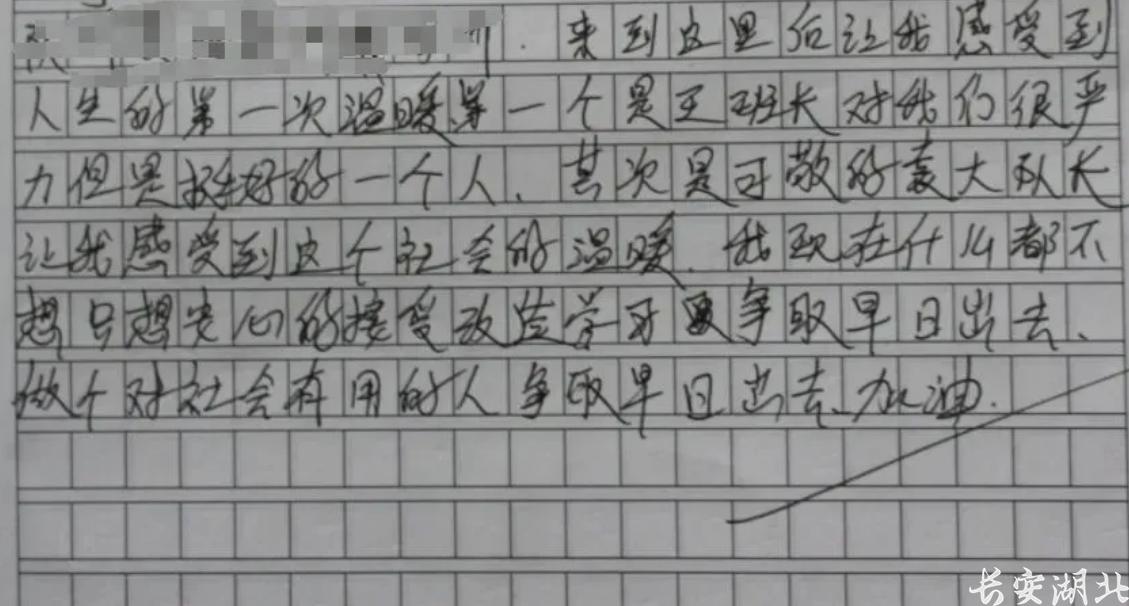 来到这里后让我感受到
人生的第一次温暖第一个是王班长对我们很严
力但是挺好的一个人、其次是可敬的袁大队长
让我感受到这个社会的温暖.我现在什么都不
想只想安心的接受改造学习争取早日出去、
做个对社会有用的人争取早日出去、加油.
长安湖北